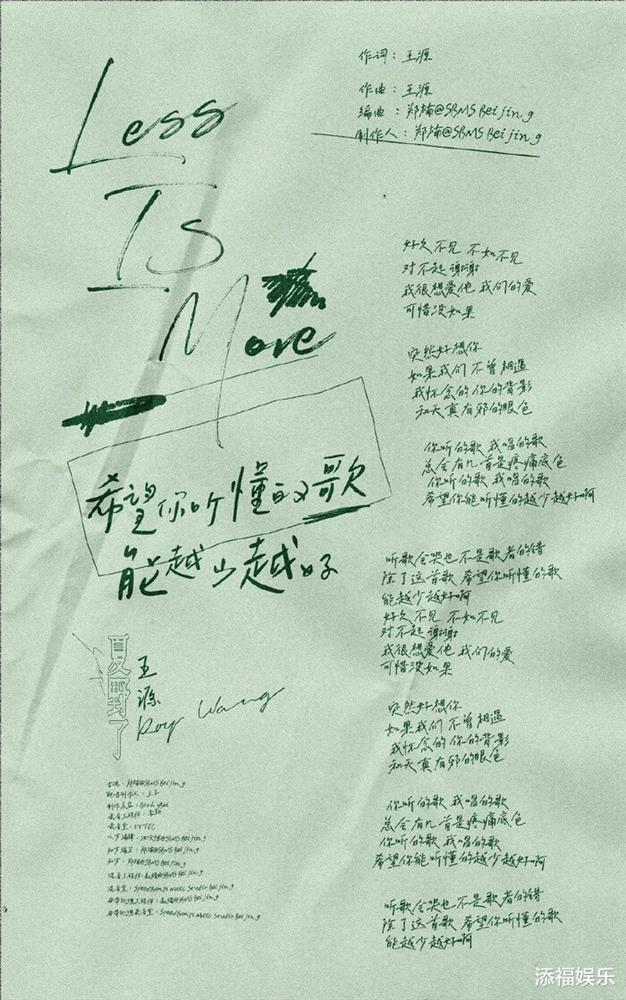 Less
Is
More
希望你听懂的歌
能越少越好
夏野了
王源
Roy Wang
作词：王源
作曲：王源
编曲：郑楠@SBMS Beijing
制作人：郑楠@SBMS Beijing
好久不见 不如不见
对不起 谢谢
我很想爱他 我们的爱
可惜没如果
突然好想你
如果我们 不曾相遇
我怀念的 你的背影
和天真有邪的眼色
你听的歌 我唱的歌
总会有几首是疼痛底色
你听的歌 我唱的歌
希望你能听懂的越少越好啊
听歌会哭也不是歌者的错
除了这首歌 希望你听懂的歌
能越少越好啊
好久不见 不如不见
对不起 谢谢
我很想爱他 我们的爱
可惜没如果
突然好想你
如果我们 不曾相遇
我怀念的 你的背影
和天真有邪的眼色
你听的歌 我唱的歌
总会有几首是疼痛底色
你听的歌 我唱的歌
希望你能听懂的越少越好啊
听歌会哭也不是歌者的错
除了这首歌 希望你听懂的歌
能越少越好啊
添福娱乐